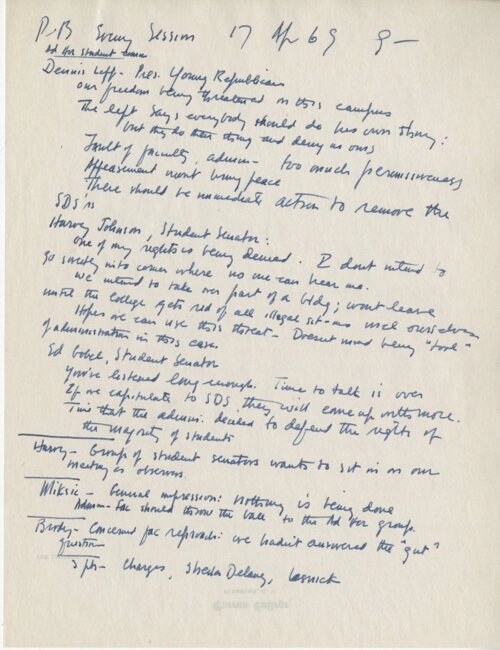 P+B Evening Session 17 Apr 69 9 —
Ad Hoc Student Comm
Dennis Leff - Pres. Young Republicans
our freedom being threatened on this campus
The left says everybody should do his own thing:
but they do their thing and deny us ours
Fault of faculty, admin - too much permissiveness
Appeasement won't bring peace
There should be immediate action to remove the
SDS'rs
Harvey Johnson, Student Senator:
One of my rights is being denied. I don't intend to
go sweetly into corner where no one can hear me.
We intend to take over part of a bldg; won't leave
until the college gets rid of all illegal sit-ins incl ourselves
Hopes we can use this threat - Doesn't mind being "tool"
of administration in this case.
Ed Gobel, Student Senator
You've listened long enough. Time to talk is over
If we capitulate to SDS they will come up with more.
Time that the admin. decided to defend the rights of
the majority of students
Harvey - Group of student senators wants to sit in on our
meeting as observers.
Miksic - General impression: nothing is being done
Admin-Fac should throw the ball to the Ad Hoc group.
Brody - Concerned fac reproach: we hadn't answered the "gut"
question
3 pts - Charges, Sheila Delany, Lesnick
Queens College